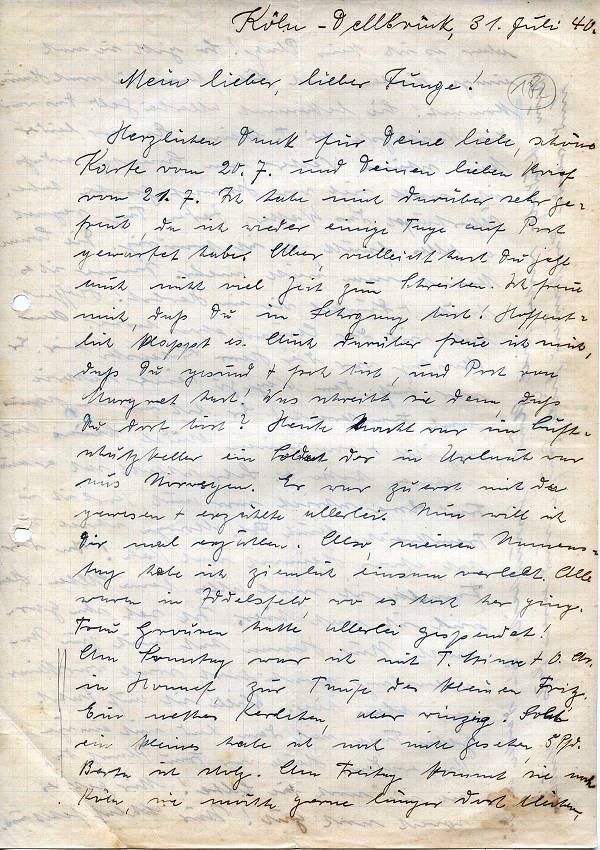 Köln-Dellbrück, 31. Juli 40.
Mein lieber, lieber Junge!
Herzlichen Dank für Deine liebe, schöne
Karte vom 20. 7. und Deinen lieben Brief
vom 21. 7. Ich habe mich darüber sehr ge-
freut, da ich wieder einige Tage auf Post
gewartet habe. Aber, vielleicht hast Du jetzt
auch nicht viel Zeit zum Schreiben. Ich freue
mich, daß Du in Lehrgang bist! Hoffent-
lich klappt es. Auch darüber freue ich mich,
daß Du gesund + froh bist, und Post von
Margret hast! Was schreibt sie denn, daß
Du dort bist? Heute Nacht war im Luft-
schutzkeller ein Soldat, der in Urlaub war
aus Norwegen. Er war zuerst mit da
gewesen + erzählte allerlei. Nun will ich
Dir mal erzählen. Also, meinen Namens-
tag habe ich ziemlich einsam verlebt. Alle
waren in Iddelsfeld, wo es hoch her ging.
Frau Grouven hatte allerlei gespendet!
Am Sonntag war ich mit T. + O.
in Honnef, zur Taufe des kleinen Fritz.
Ein nettes Kerlchen, aber winzig. Solch
ein kleines habe ich noch nicht gesehen, 5 Pfd.
Berta ist stolz. Am Freitag kommt sie nach
Köln, sie möchte gerne länger dort bleiben,